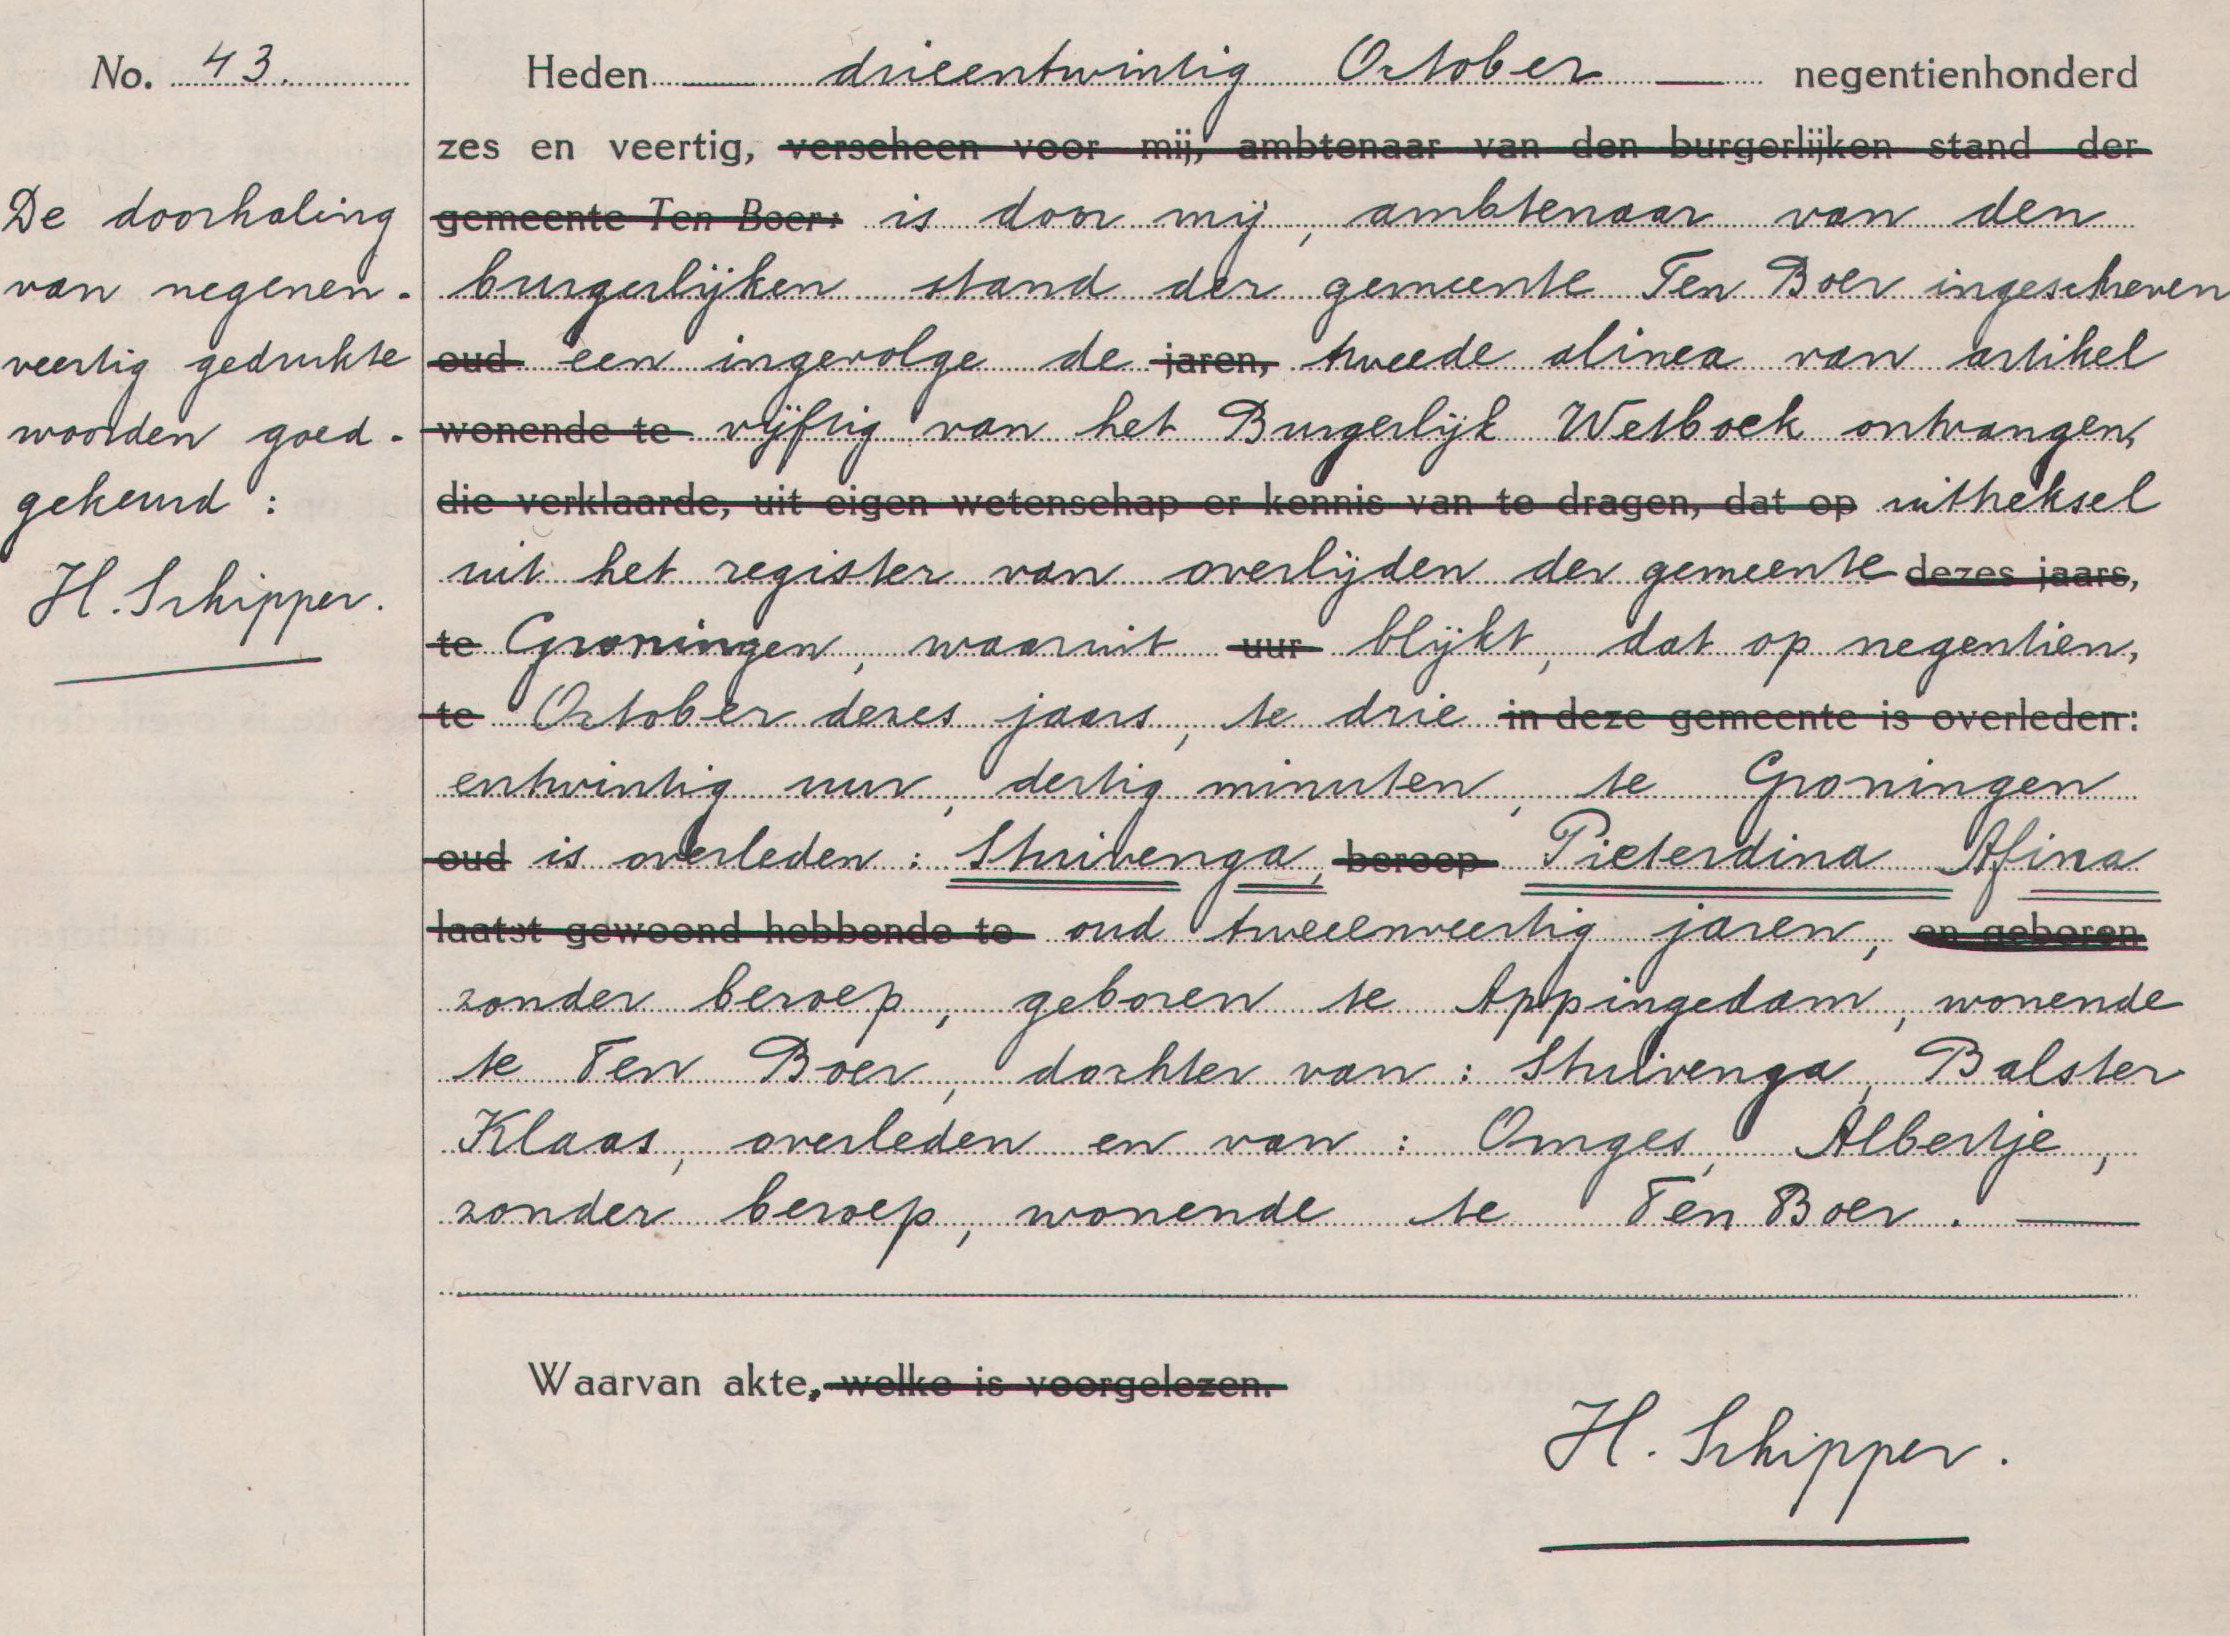 No. 43.
Heden drieentwintig October negentienhonderd
zes en veertig, verscheen voor mij, ambtenaar van den burgerlijken stand der
gemeente Ten Boer: is door mij, ambtenaar van den
burgerlijken stand der gemeente Ten Boer ingeschreven
oud een ingevolge de jaren, tweede alinea van artikel
wonende te vijftig van het Burgerlijk Wetboek ontvangen,
die verklaarde, uit eigen wetenschap er kennis van te dragen, dat op uittreksel
uit het register van overlijden der gemeente dezes jaars,
te Groningen, waaruit uur blijkt, dat op negentien,
te October dezes jaars, te drie in deze gemeente is overleden:
entwintig uur, dertig minuten, te Groningen
oud is overleden: Stuivenga, beroep Pieterdina Afina
laatst gewoond hebbende te oud tweeenveertig jaren, en geboren
zonder beroep, geboren te Appingedam, wonende
te Ten Boer, dochter van: Stuivenga, Balster
Klaas, overleden en van: Omges, Albertje,
zonder beroep, wonende te Ten Boer.
Waarvan akte, welke is voorgelezen.
H. Schipper.
De doorhaling
van negenen-
veertig gedrukte
woorden goed-
gekeurd:
H. Schipper.